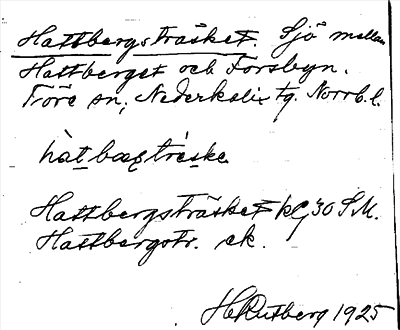 Hattbergsträsket. Sjö mellan
Hattberget och Forsbyn.
Töre sn, Nederkalix tg. Norrb. l.
hàt bærtrèske
Hattbergsträsket kg 30 S.M.
Hattbergstr. ek.
H Rutberg 1925